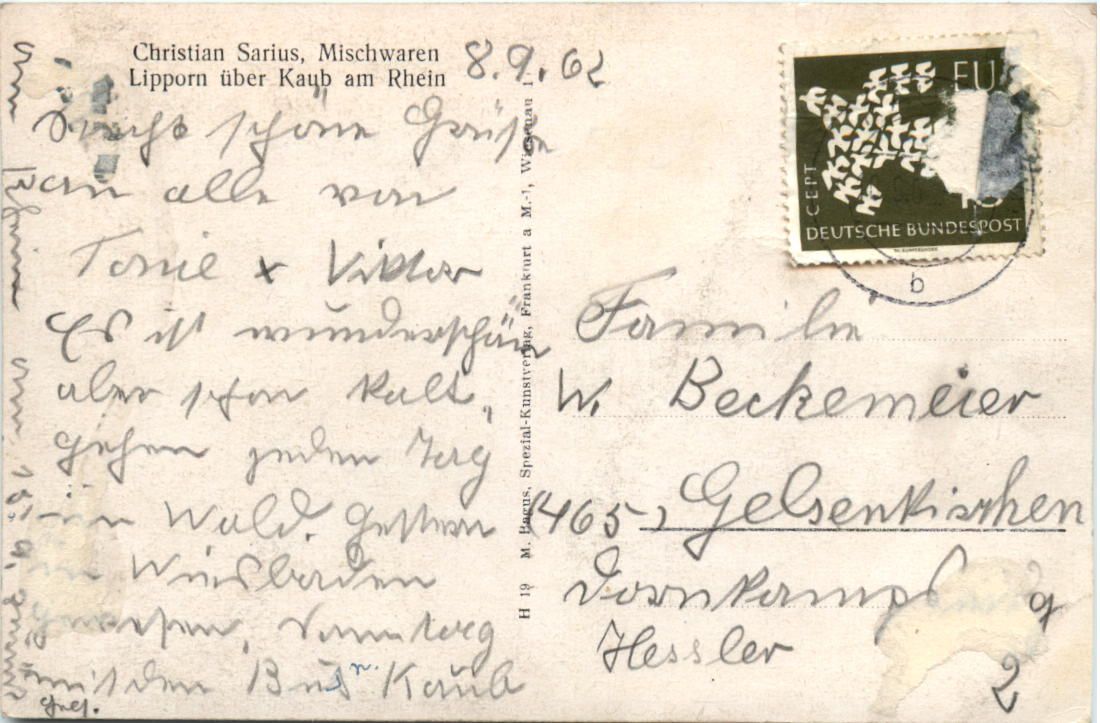 Christian Sarius, Mischwaren
Lipporn über Kaub am Rhein
8.9.62
Recht schöne Grüße
an alle von
Toni x Viktor
Es ist wunderschön
aber schon kalt,
gehen jeden Tag
in Wald. Gestern
in Wiesbaden
gewesen, Sonntag
mit dem Bus n. Kaub
gef.
H 19 M. Bagus, Spezial-Kunstverlag, Frankfurt a M.-1, Wiesenau 1
EU
CEPT
DEUTSCHE BUNDESPOST
b
Familie
W. Beckemeier
(465) Gelsenkirchen
Dornkamp 9
Hessler
2